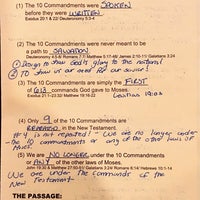 (1) The 10 Commandments were SPOKEN
before they were WRITTEN
Exodus 20:1 & 22/ Deuteronomy 5:3-4
(2) The 10 Commandments were never meant to be
a path to SALVATION
1 Design to show God's glory to the natural
2 TO show us our need for our savior!
(3) The 10 Commandments are simply the FIRST
of 613 commands God gave to Moses.
Exodus 21:1-23:32/ Matthew 19:16-22 Leviticus 19:03
(4) Only 9 of the 10 Commandments are
REPEATED in the New Testament.
#4 is not repeated! - We are no longer under
the 10 commandments or any of the other laws of
Moses.
(5) We are NO LONGER under the 10 Commandments
or ANY of the other laws of Moses.
We are under the commands of the
New Testament
THE PASSAGE: